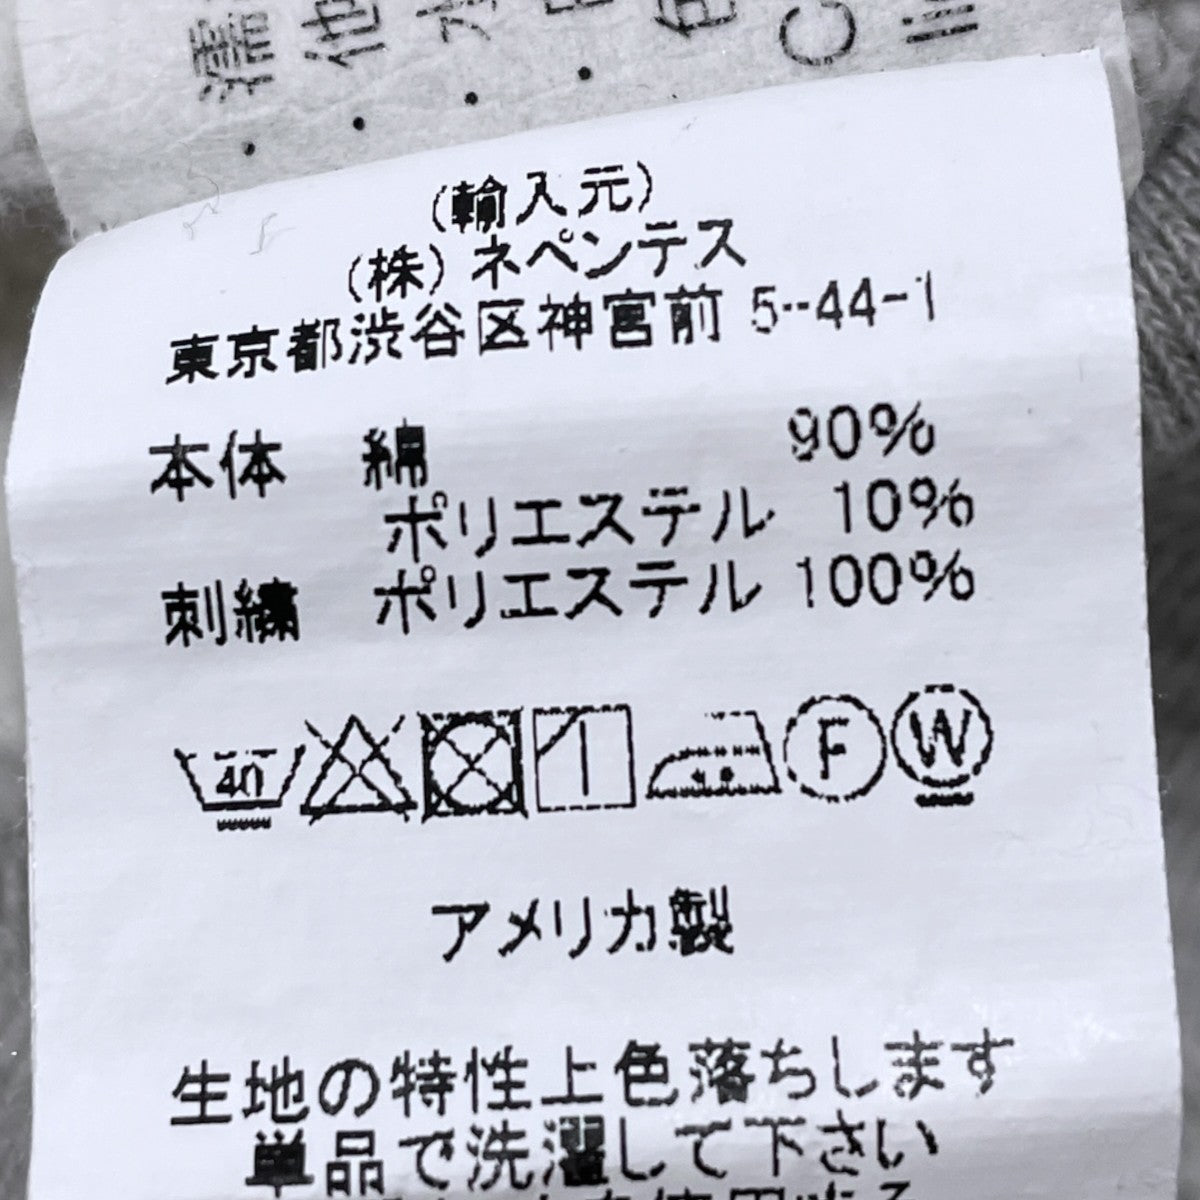 (輸入元)
(株)ネペンテス
東京都渋谷区神宮前 5-44-1
本体 綿 90%
ポリエステル 10%
刺繍 ポリエステル 100%
40
F W
アメリカ製
生地の特性上色落ちします
単品で洗濯して下さい